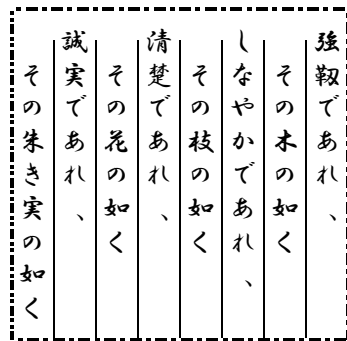 強靱であれ、
その木の如く
しなやかであれ、
その枝の如く
清楚であれ、
その花の如く
誠実であれ、
その朱き実の如く